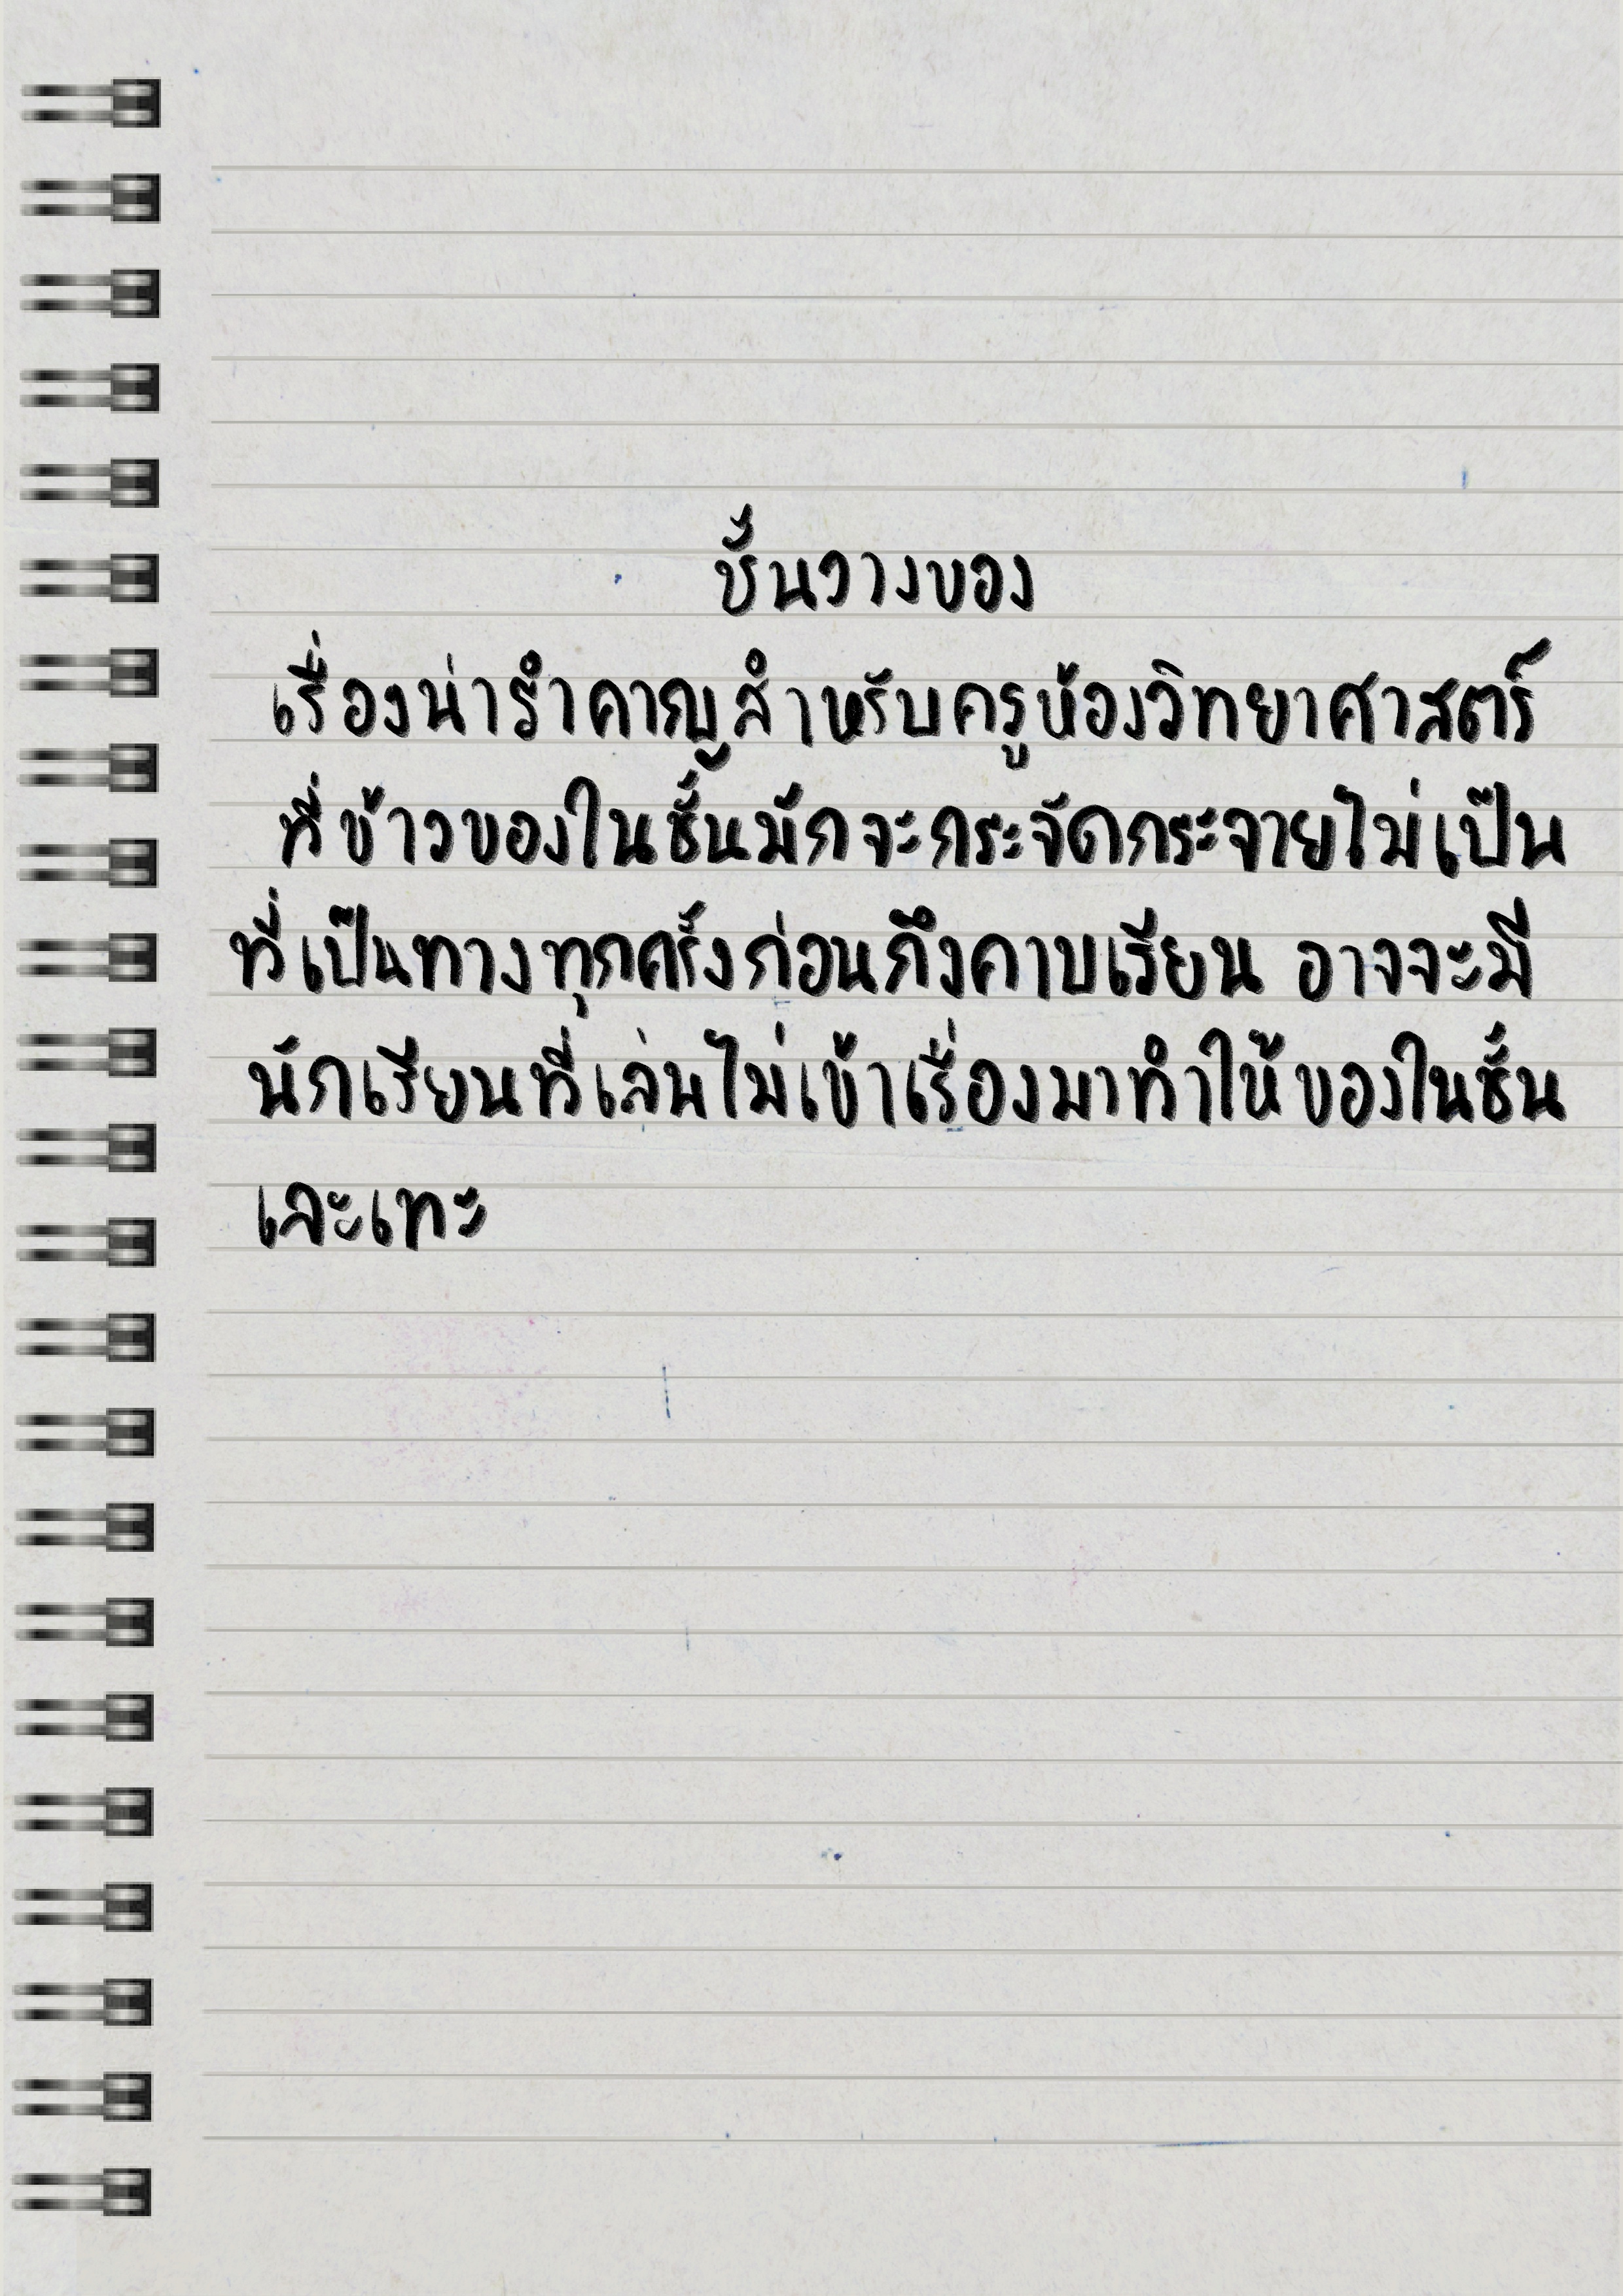 ชั้นวางของ
เรื่องน่ารำคาญสำหรับครูห้องวิทยาศาสตร์
ที่ข้าวของในชั้นมักจะกระจัดกระจายไม่เป็น
ที่เป็นทางทุกครั้งก่อนถึงคาบเรียน อาจจะมี
นักเรียนที่เล่นไม่เข้าเรื่องมาทำให้ของในชั้น
เละเทะ